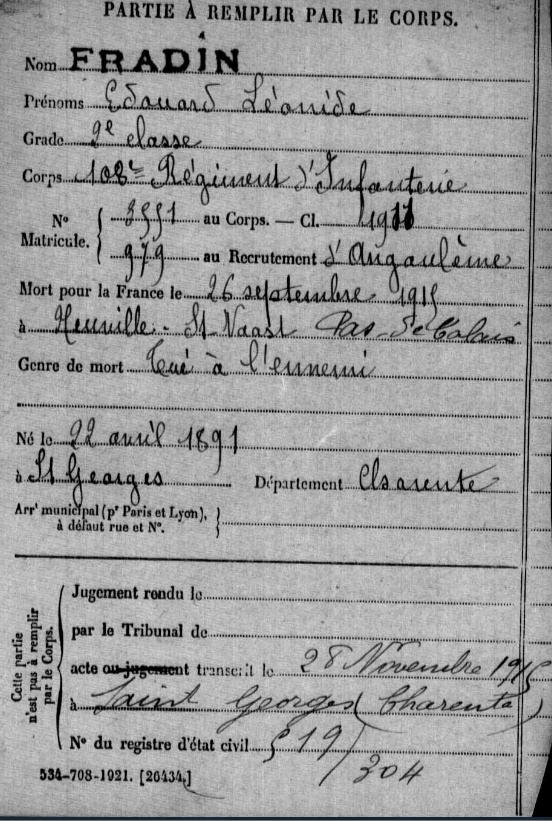 PARTIE À REMPLIR PAR LE CORPS.
Nom FRADIN
Prénoms Edouard Léonide
Grade 2e classe
Corps 108e Régiment d'Infanterie
N° Matricule. { 3551 au Corps. — Cl. 1911
979 au Recrutement d'Angoulême
Mort pour la France le 26 septembre 1915
à Neuville-St-Vaast Pas-de-Calais
Genre de mort Tué à l'ennemi
Né le 22 avril 1891
à St Georges Département Charente
Arrt municipal (pr Paris et Lyon),
à défaut rue et N°.
Cette partie n'est pas à remplir par le Corps.
Jugement rendu le
par le Tribunal de
acte ou jugement transcrit le 28 Novembre 1915
à Saint Georges (Charente)
N° du registre d'état civil 19/
304
534-708-1921. [26434.]